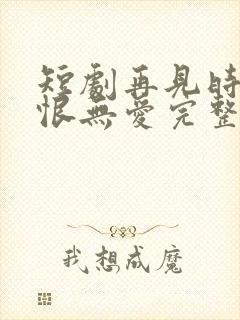 短劇再見時
恨無愛完整
我想成魔